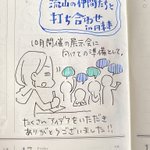 流山の仲間たちと
打ち合わせ
in 日本
10月開催の展示会に
向けての準備として、
たくさんアイデアをいただき
ありがとうございました!!